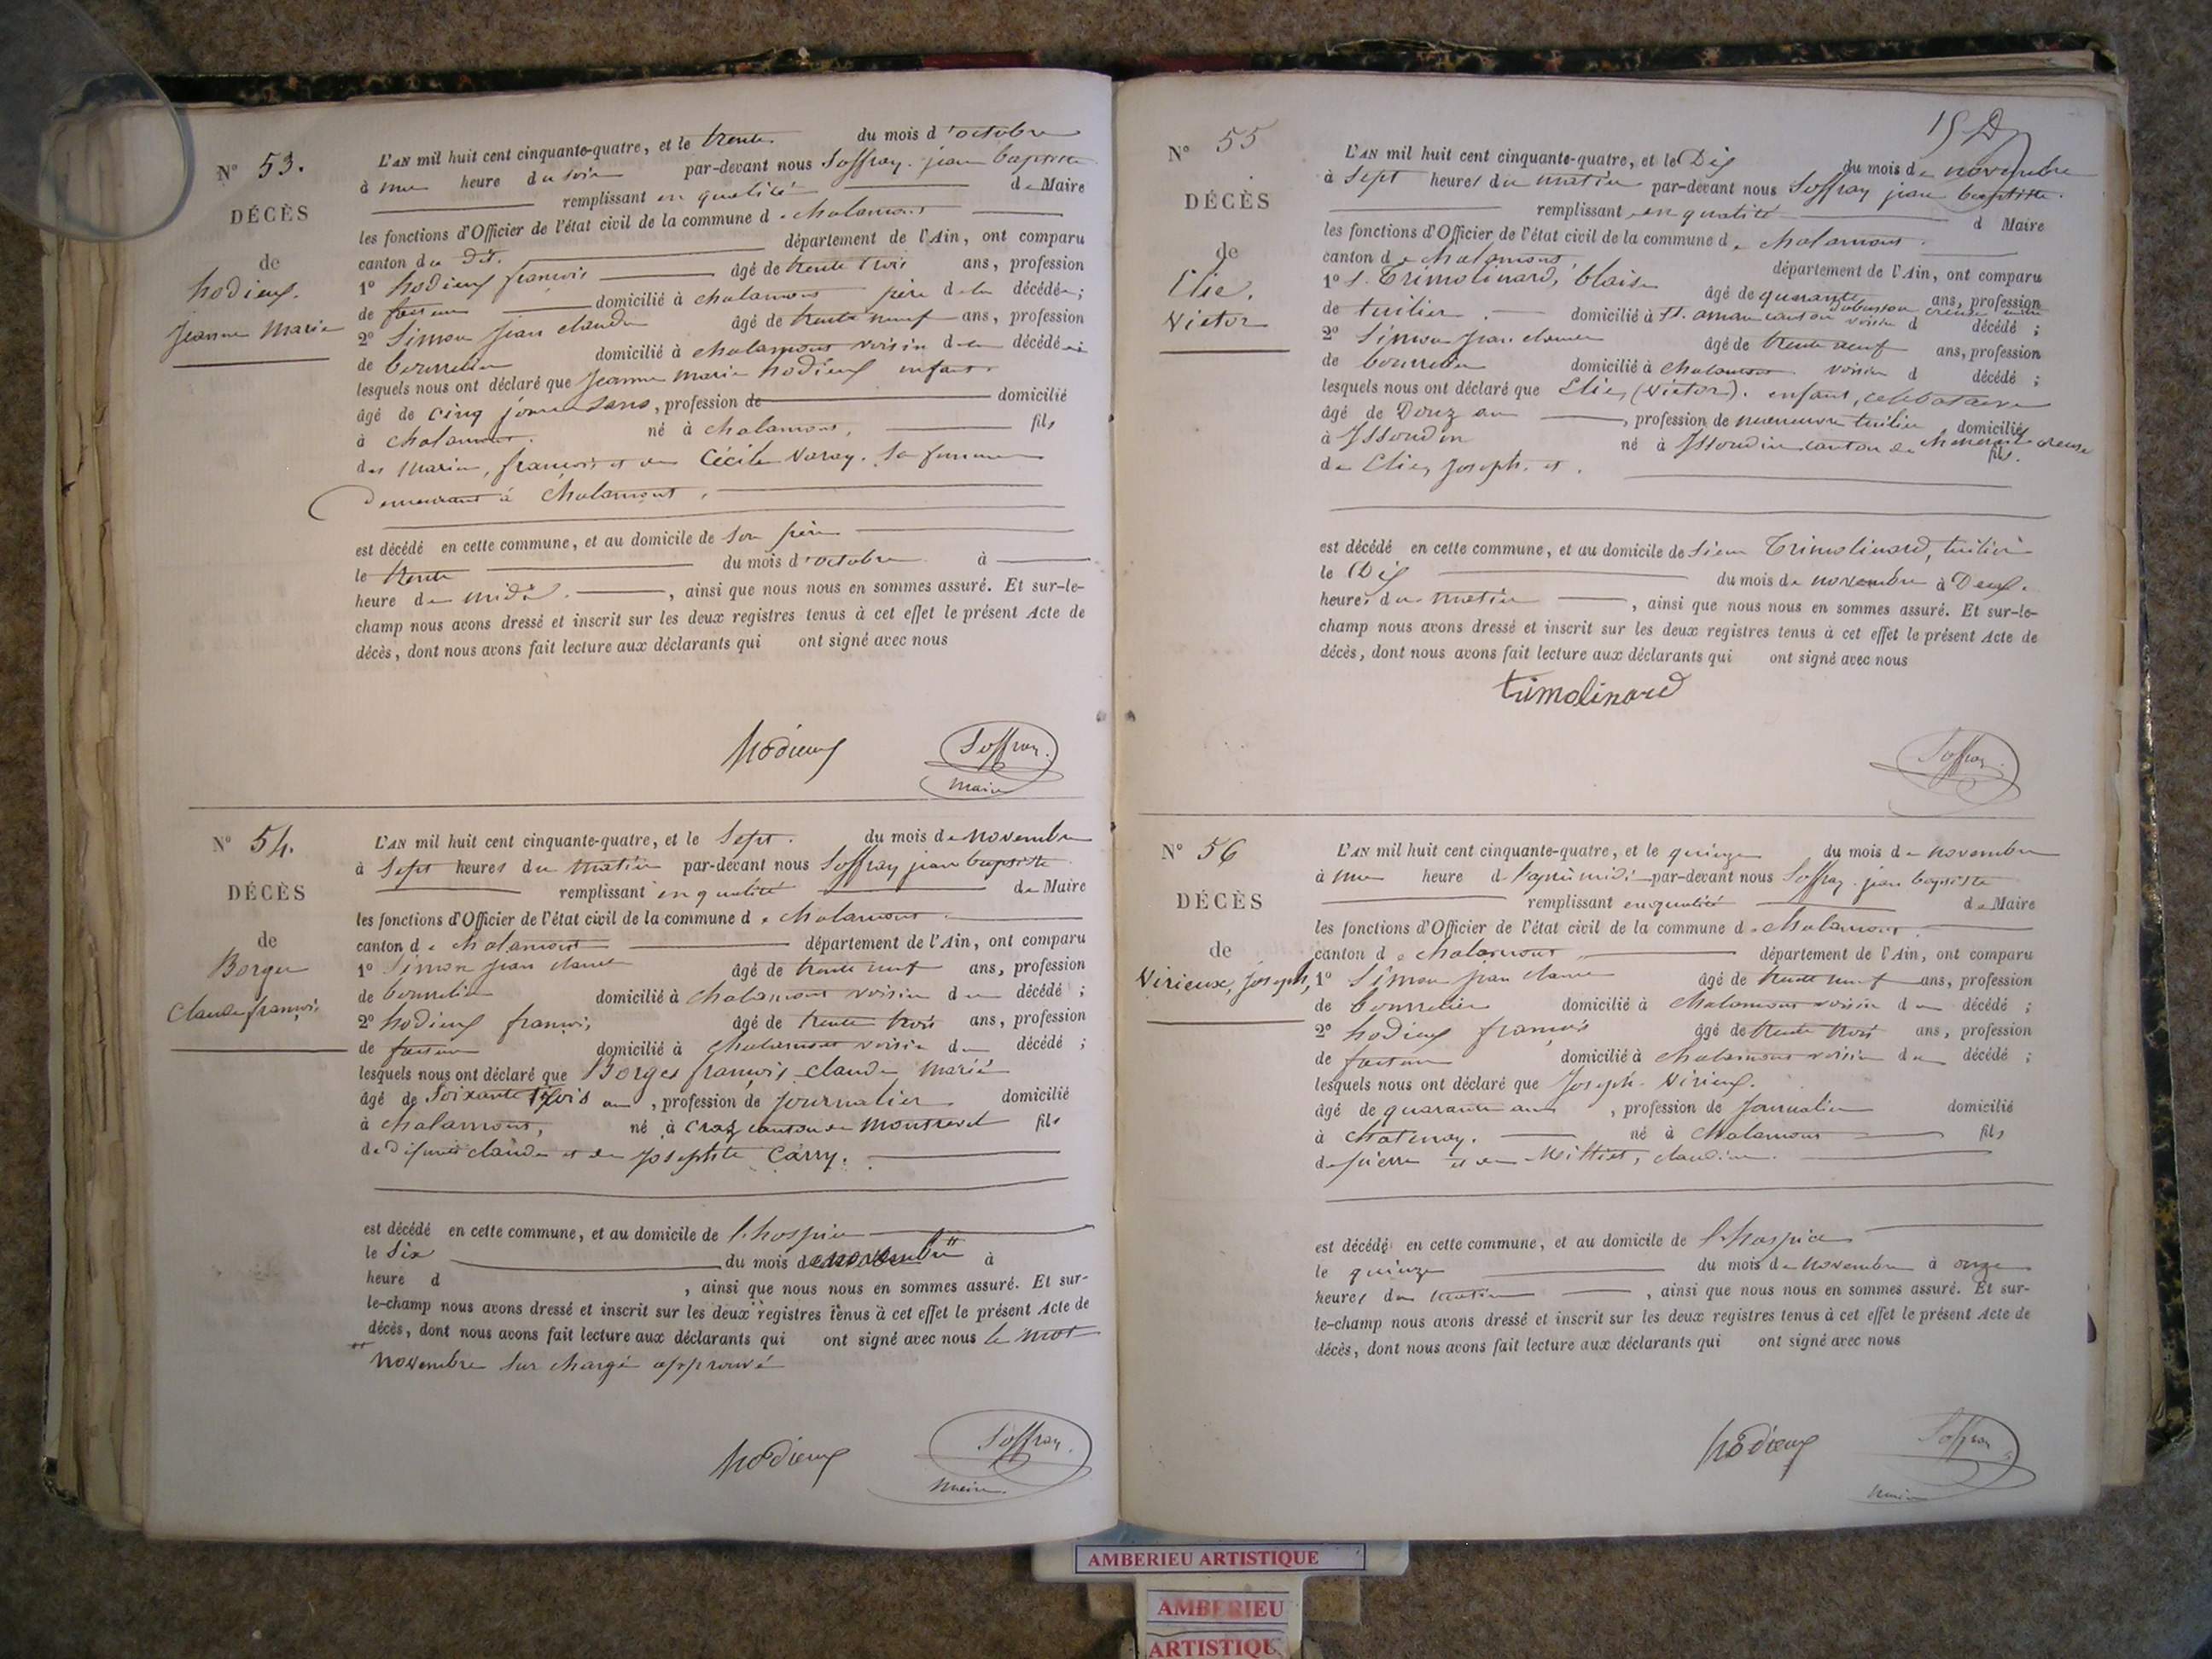 N° 53.
DÉCÈS
de
hodieux.
Jeanne Marie
L'AN mil huit cent cinquante-quatre, et le trente du mois d'octobre
à une heure du soir par-devant nous Soffray jean baptiste
remplissant en qualité de Maire
les fonctions d'Officier de l'état civil de la commune de chalamont
canton du dit. département de l'Ain, ont comparu
1° hodieux françois âgé de trente trois ans, profession
de domicilié à chalamont père de la décédée;
2° Simon Jean claude âgé de trente neuf ans, profession
de bourrelier domicilié à chalamont voisin de la décédée;
lesquels nous ont déclaré que Jeanne marie hodieux enfant
âgé de cinq jours sans, profession de domicilié
à chalamont. né à chalamont, fils
des mariés, françois et de Cécile Varay. sa femme
demeurant à chalamont,
est décédé en cette commune, et au domicile de son père
le trente du mois d'octobre à
heure de midi. , ainsi que nous nous en sommes assuré. Et sur-le-
champ nous avons dressé et inscrit sur les deux registres tenus à cet effet le présent Acte de
décès, dont nous avons fait lecture aux déclarants qui ont signé avec nous
hodieux Soffray.
maire
N° 54.
DÉCÈS
de
Borges
Claude françois
L'AN mil huit cent cinquante-quatre, et le Sept. du mois de novembre
à Sept heures du matin par-devant nous Soffray jean baptiste
remplissant en qualité de Maire
les fonctions d'Officier de l'état civil de la commune de chalamont
canton de chalamont département de l'Ain, ont comparu
1° Simon jean claude âgé de trente neuf ans, profession
de bourrelier domicilié à chalamont voisin du décédé;
2° hodieux françois âgé de trente trois ans, profession
de domicilié à chalamont voisin du décédé;
lesquels nous ont déclaré que Borges françois claude marié
âgé de Soixante trois ans, profession de journalier domicilié
à chalamont, né à Craz canton de Montrevel fils
de défunts claude et de Josephte Carry.
est décédé en cette commune, et au domicile de l'hospice
le Six du mois de novembre à
heure d , ainsi que nous nous en sommes assuré. Et sur-
le-champ nous avons dressé et inscrit sur les deux registres tenus à cet effet le présent Acte de
décès, dont nous avons fait lecture aux déclarants qui ont signé avec nous le mot
novembre sur chargé approuvé
hodieux Soffray.
maire.
N° 55
DÉCÈS
de
Elie,
Victor
L'AN mil huit cent cinquante-quatre, et le Dix du mois de novembre
à Sept heures du matin par-devant nous Soffray jean baptiste.
remplissant en qualité d Maire
les fonctions d'Officier de l'état civil de la commune de chalamont.
canton de chalamont département de l'Ain, ont comparu
1° S. Trimolinard, blaise âgé de quarante ans, profession
de tuilier. domicilié à St. amand canton d'aubusson creuse voisin d décédé;
2° Simon Jean claude âgé de trente neuf ans, profession
de bourrelier domicilié à chalamont voisin d décédé;
lesquels nous ont déclaré que Elie, (Victor). enfant, célibataire
âgé de Douze ans, profession de manoeuvre tuilier domicilié
à Issoudun né à Issoudun canton de chénerailles creuse fils.
de Elie, Joseph. et.
est décédé en cette commune, et au domicile de Sieur Trimolinard, tuilier
le Dix du mois de novembre à Deux.
heures du matin , ainsi que nous nous en sommes assuré. Et sur-le-
champ nous avons dressé et inscrit sur les deux registres tenus à cet effet le présent Acte de
décès, dont nous avons fait lecture aux déclarants qui ont signé avec nous
trimolinard
Soffray.
N° 56
DÉCÈS
de
Virieux, Joseph,
L'AN mil huit cent cinquante-quatre, et le quinze du mois de novembre
à une heure d l'après midi par-devant nous Soffray jean baptiste
remplissant en qualité de Maire
les fonctions d'Officier de l'état civil de la commune de chalamont
canton de chalamont département de l'Ain, ont comparu
1° Simon jean claude âgé de trente neuf ans, profession
de bourrelier domicilié à chalamont voisin du décédé;
2° hodieux françois âgé de trente trois ans, profession
de domicilié à chalamont voisin du décédé;
lesquels nous ont déclaré que Joseph Virieux.
âgé de quarante ans, profession de journalier domicilié
à chatenay. né à chalamont fils
de pierre et de claudine.
est décédé en cette commune, et au domicile de l'hospice
le quinze du mois de novembre à onze
heures du matin , ainsi que nous nous en sommes assuré. Et sur-
le-champ nous avons dressé et inscrit sur les deux registres tenus à cet effet le présent Acte de
décès, dont nous avons fait lecture aux déclarants qui ont signé avec nous
hodieux Soffray
maire
AMBERIEU ARTISTIQUE
AMBERIEU
ARTISTIQUE